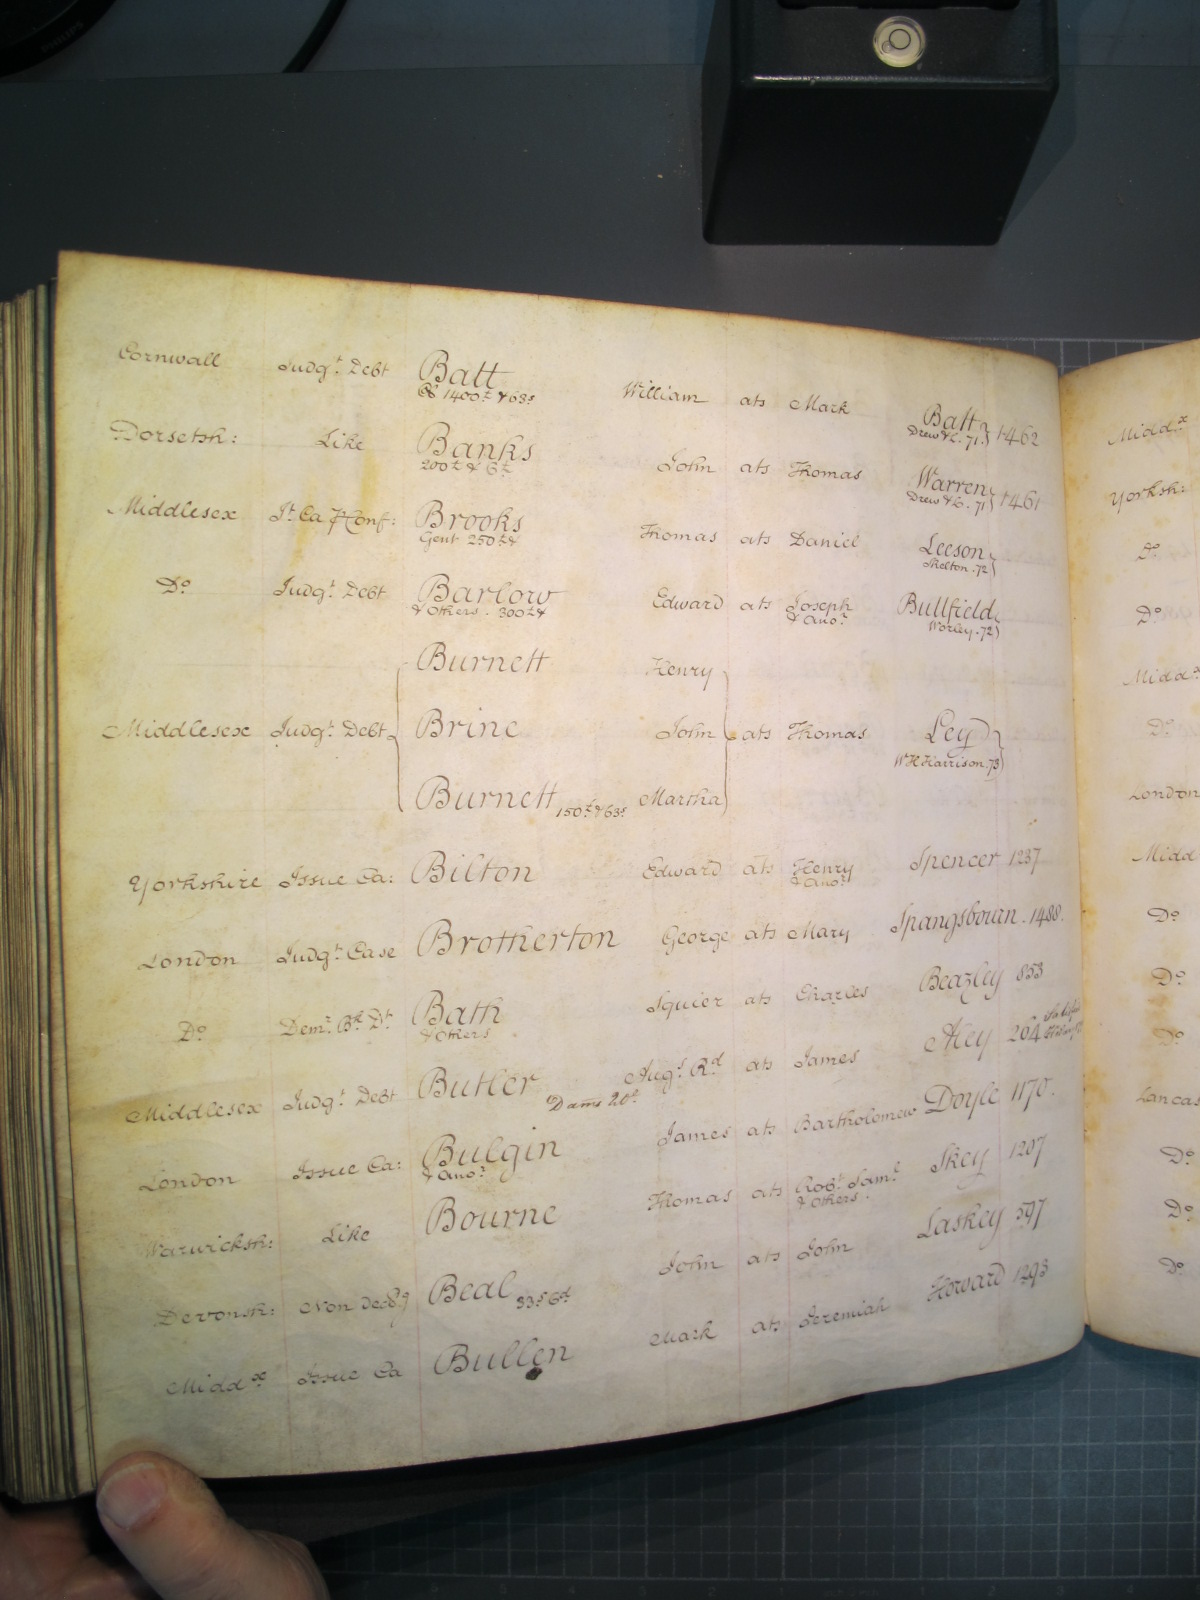 Cornwall Judgt. Debt Batt William ats Mark Batt 1462
1400£ & 63s Drew & Co. 71
Dorsetsh: Like Banks John ats Thomas Warren 1461
200£ & Drew & Co. 71
Middlesex Jt. Ca Conf: Brooks Thomas ats Daniel Leeson
Gent 250£ & Skelton. 72
Do. Judgt. Debt Barlow Edward ats Joseph Bullfield
& Others. 300£ & & Anor. Worley. 72
Burnett Henry
Middlesex Judgt. Debt Brine John ats Thomas Ley
W H Harrison. 73
Burnett 150£ & 63s Martha
Yorkshire Issue Ca: Bilton Edward ats Henry Spencer 1237
& Anor.
London Judgt. Case Brotherton George ats Mary Spangsbourn. 1488.
Do. Demr. Bk. Dt. Bath Squier ats Charles Beazley 853
& Others
Middlesex Judgt. Debt Butler Augs. Rd. ats James Hey 204
Dams 20£.
London Issue Ca: Bulgin James ats Bartholomew Doyle 1170.
& Anor.
Warwicksh: Like Bourne Thomas ats Robt. Saml. Skey 1207
& Others.
Devonsh: Non Beal John ats John Laskey 597
33s 6d
Middx. Issue Ca Bullen Mark ats Jeremiah Howard 1293
Middx.
Yorksh:
Do.
Do.
Midd
Do.
London
Midd
Do.
Do.
Do.
Lancas
Do.
Do.
Do.